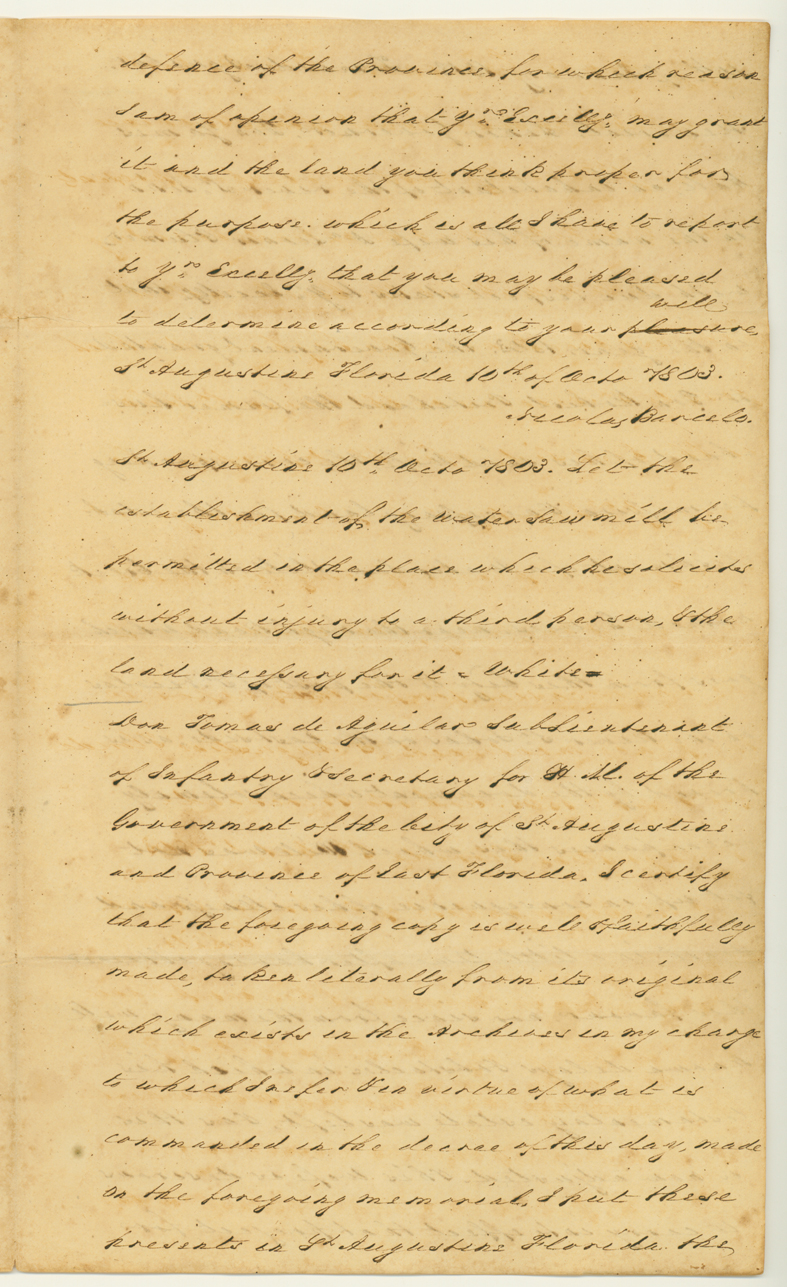 defence of the Province, for which reason
I am of opinion that Yr. Excelly. may grant
it and the land you think proper for
the purpose. which is all I have to report
to Yr. Excelly. that you may be pleased
will
to determine according to your pleasure,
St. Augustine Florida 10th of Octo 1803.
Nicolas Barcelo.
St. Augustine 10th Octo 1803. Let the
establishment of the water saw mill be
permitted in the place which he solicites
without injury to a third person, & the
land necessary for it = White =
Don Tomas de Aguilar Sub Lieutenant
of Infantry & Secretary for H. M. of the
Government of the City of St. Augustine
and Province of East Florida. I certify
that the foregoing copy is well & faithfully
made, taken literally from its original
which exists in the Archives in my charge
to which I refer & in virtue of what is
commanded in the decree of this day, made
on the foregoing memorial, I put these
presents in St. Augustine Florida the